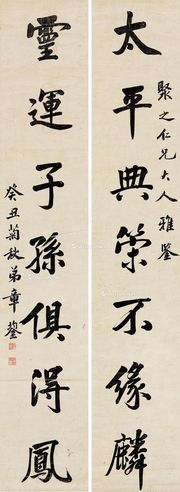 聚之仁兄大人雅鑒
太平典筞不緣麟
靈運子孫俱得鳳
癸丑菊秋弟章鋆